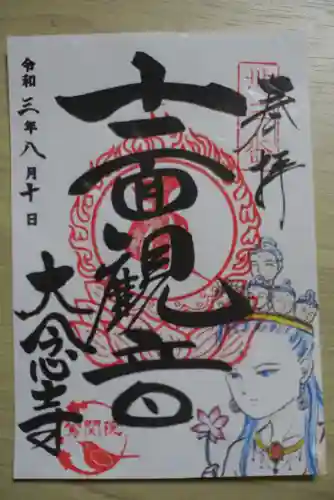 奉拝
十一面観音
大念寺
令和三年八月十日